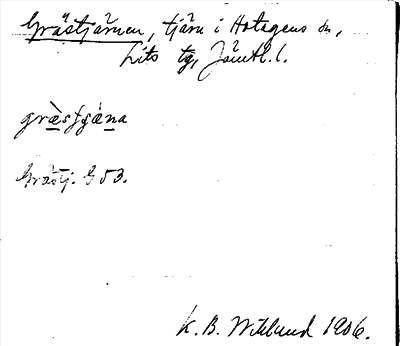 Grästjärnen, tjärn i Hotagens sn,
Lits tg, Jämtl. l.
græ̀sʃǥæ̀na
Grästj. G 53.
K. B. Wiklund 1906.